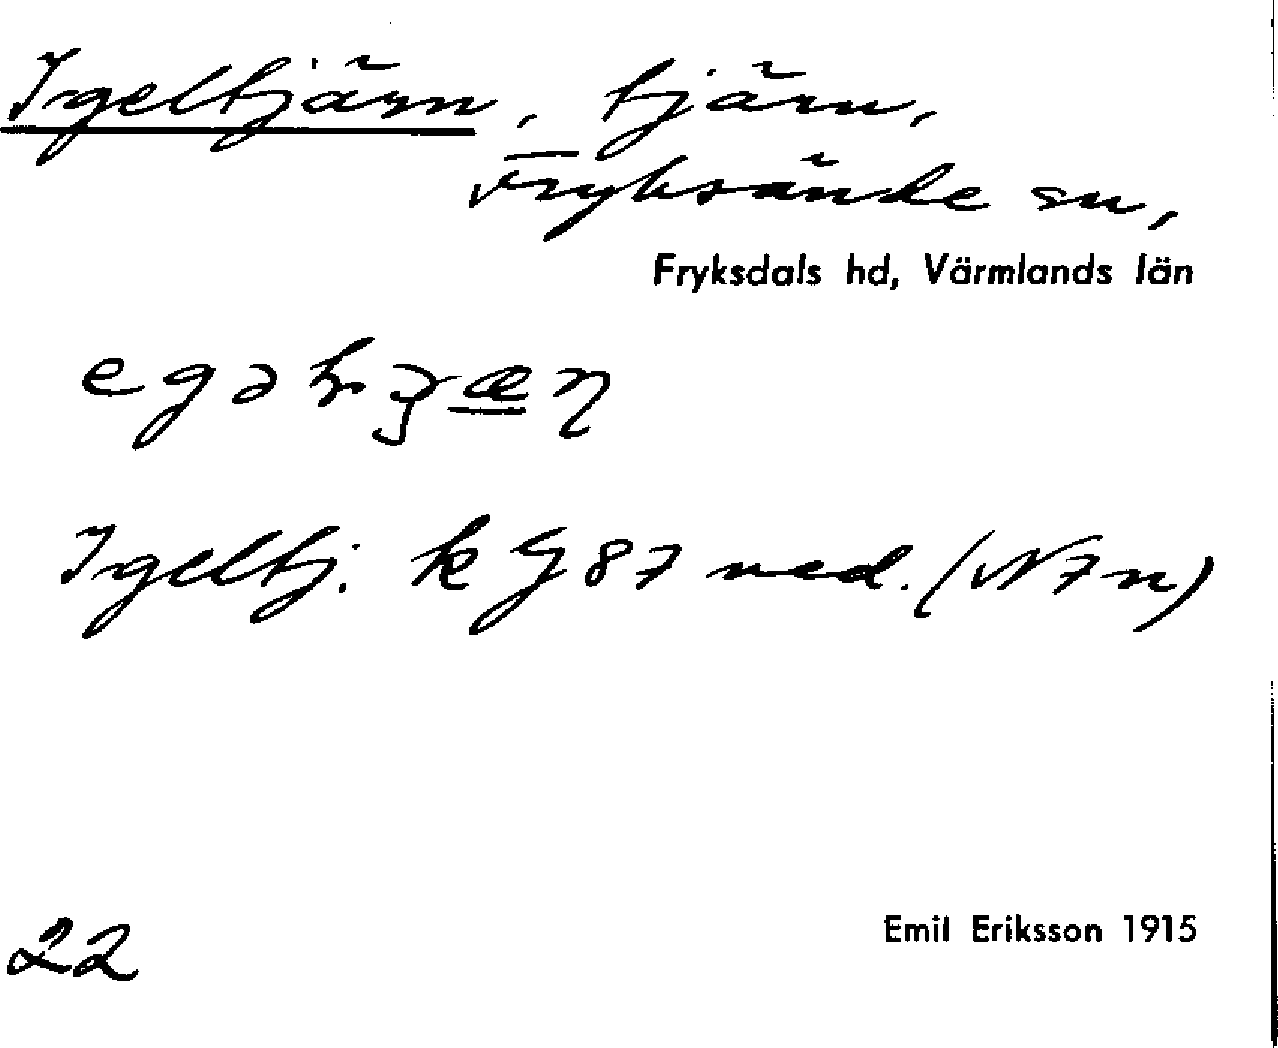 Igeltjärn, tjärn,
Fryksände sn,
Fryksdals hd, Värmlands län
Igeltj. k G 87 ned. (N 7 n)
22
Emil Eriksson 1915